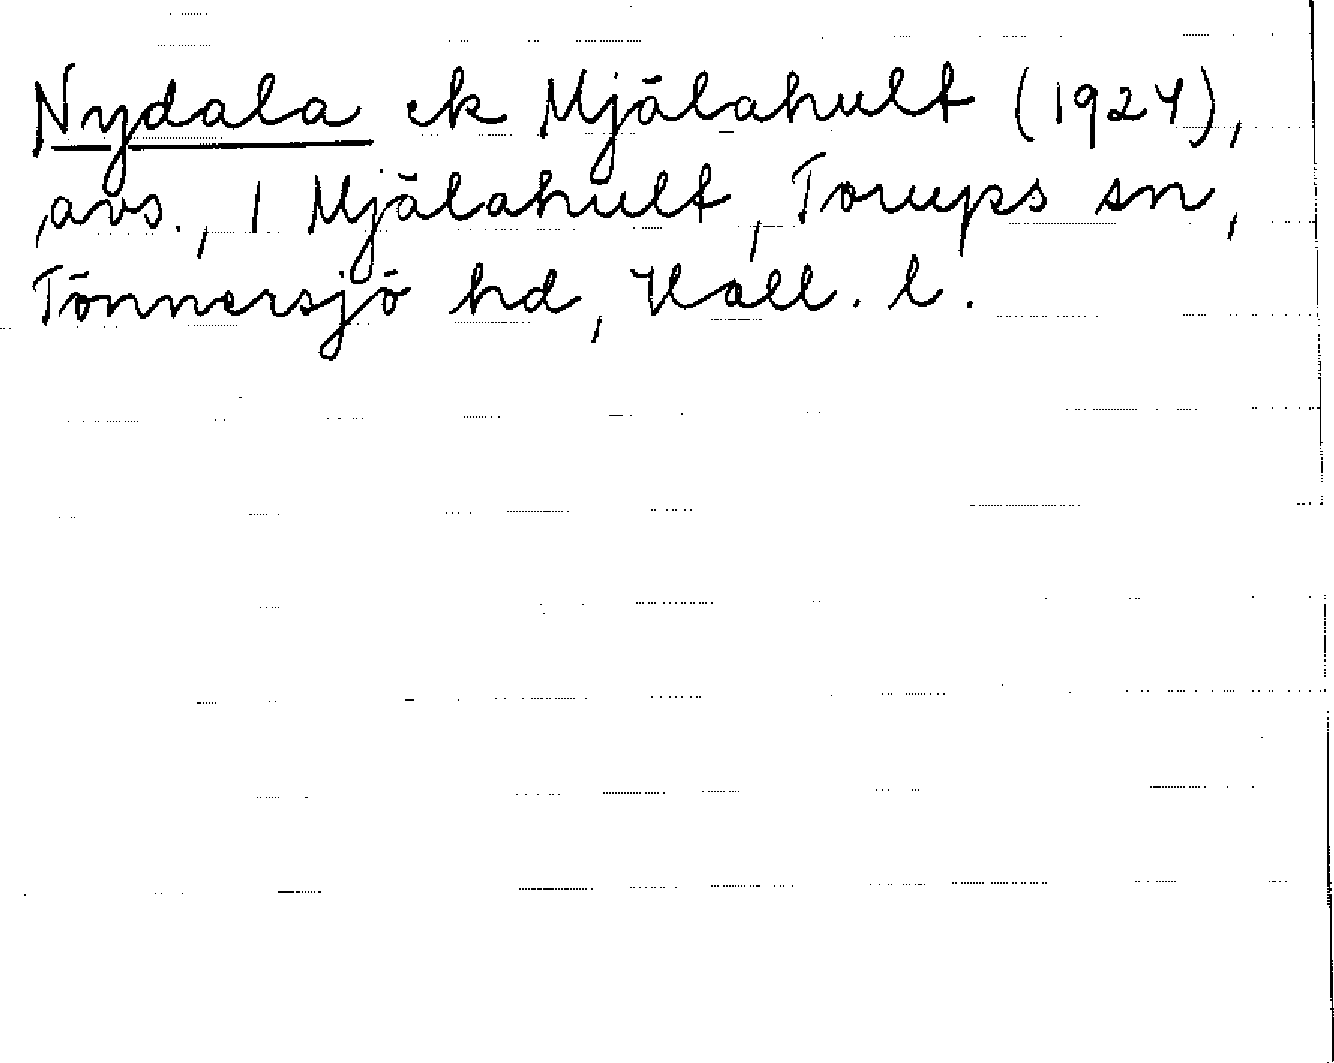 Nydala ek Mjälahult (1924),
avs., 1 Mjälahult, Torups sn,
Tönnersjö hd, Hall. l.